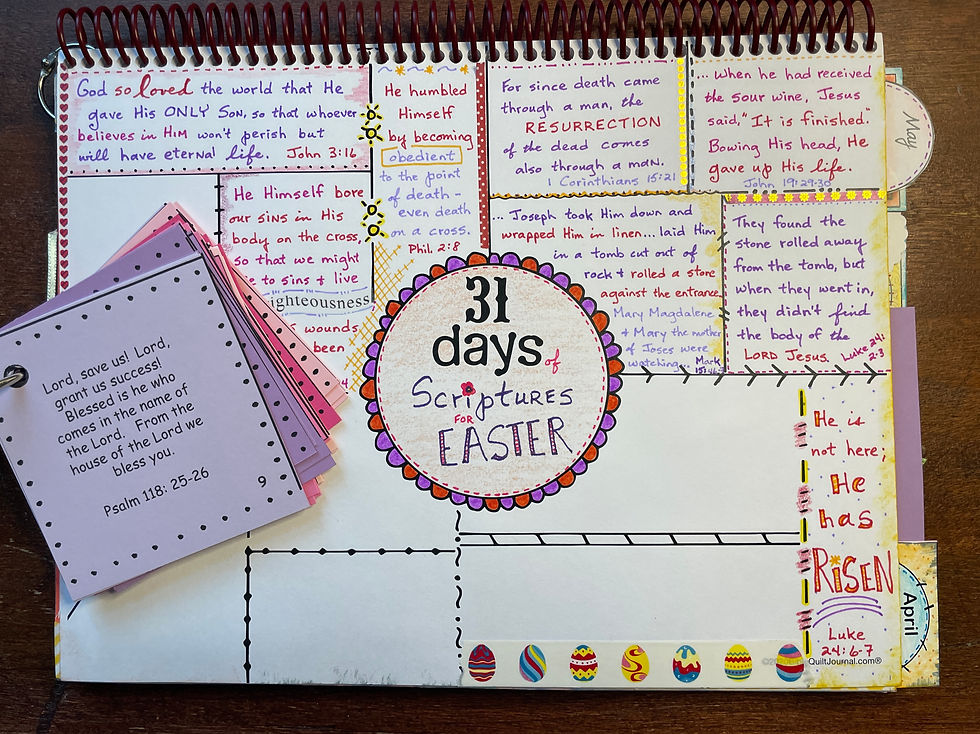 God so loved the world that He
gave His ONLY SON, so that whoever
believes in HIM won't perish but
will have eternal life. John 3:16
He humbled
Himself
by becoming
obedient
to the point
of death -
even death
on a cross.
Phil. 2:8
For since death came
through a man, the
RESURRECTION
of the dead comes
also through a man.
1 Corinthians 15:21
... when he had received
the sour wine, Jesus
said, "It is finished."
Bowing His head, He
gave up His life.
John 19:29-30
May
He Himself bore
our sins in His
body on the cross,
so that we might
to sins + live
ighteousness
wounds
been
... Joseph took Him down and
wrapped Him in linen... laid Him
in a tomb cut out of
rock + rolled a stone
against the entrance.
Mary Magdalene
+ Mary the mother
of Joses were
watching... Mark
15:46-7
They found the
stone rolled away
from the tomb, but
when they went in,
they didn't find
the body of the
LORD JESUS. Luke 24:
2-3
31
days of
Scriptures
FOR
EASTER
Lord, save us! Lord,
grant us success!
Blessed is he who
comes in the name of
the Lord. From the
house of the Lord we
bless you.
Psalm 118: 25-26
9
He is
not here;
He
has
RISEN
Luke
24:6-7
QuiltJournal.com®
April